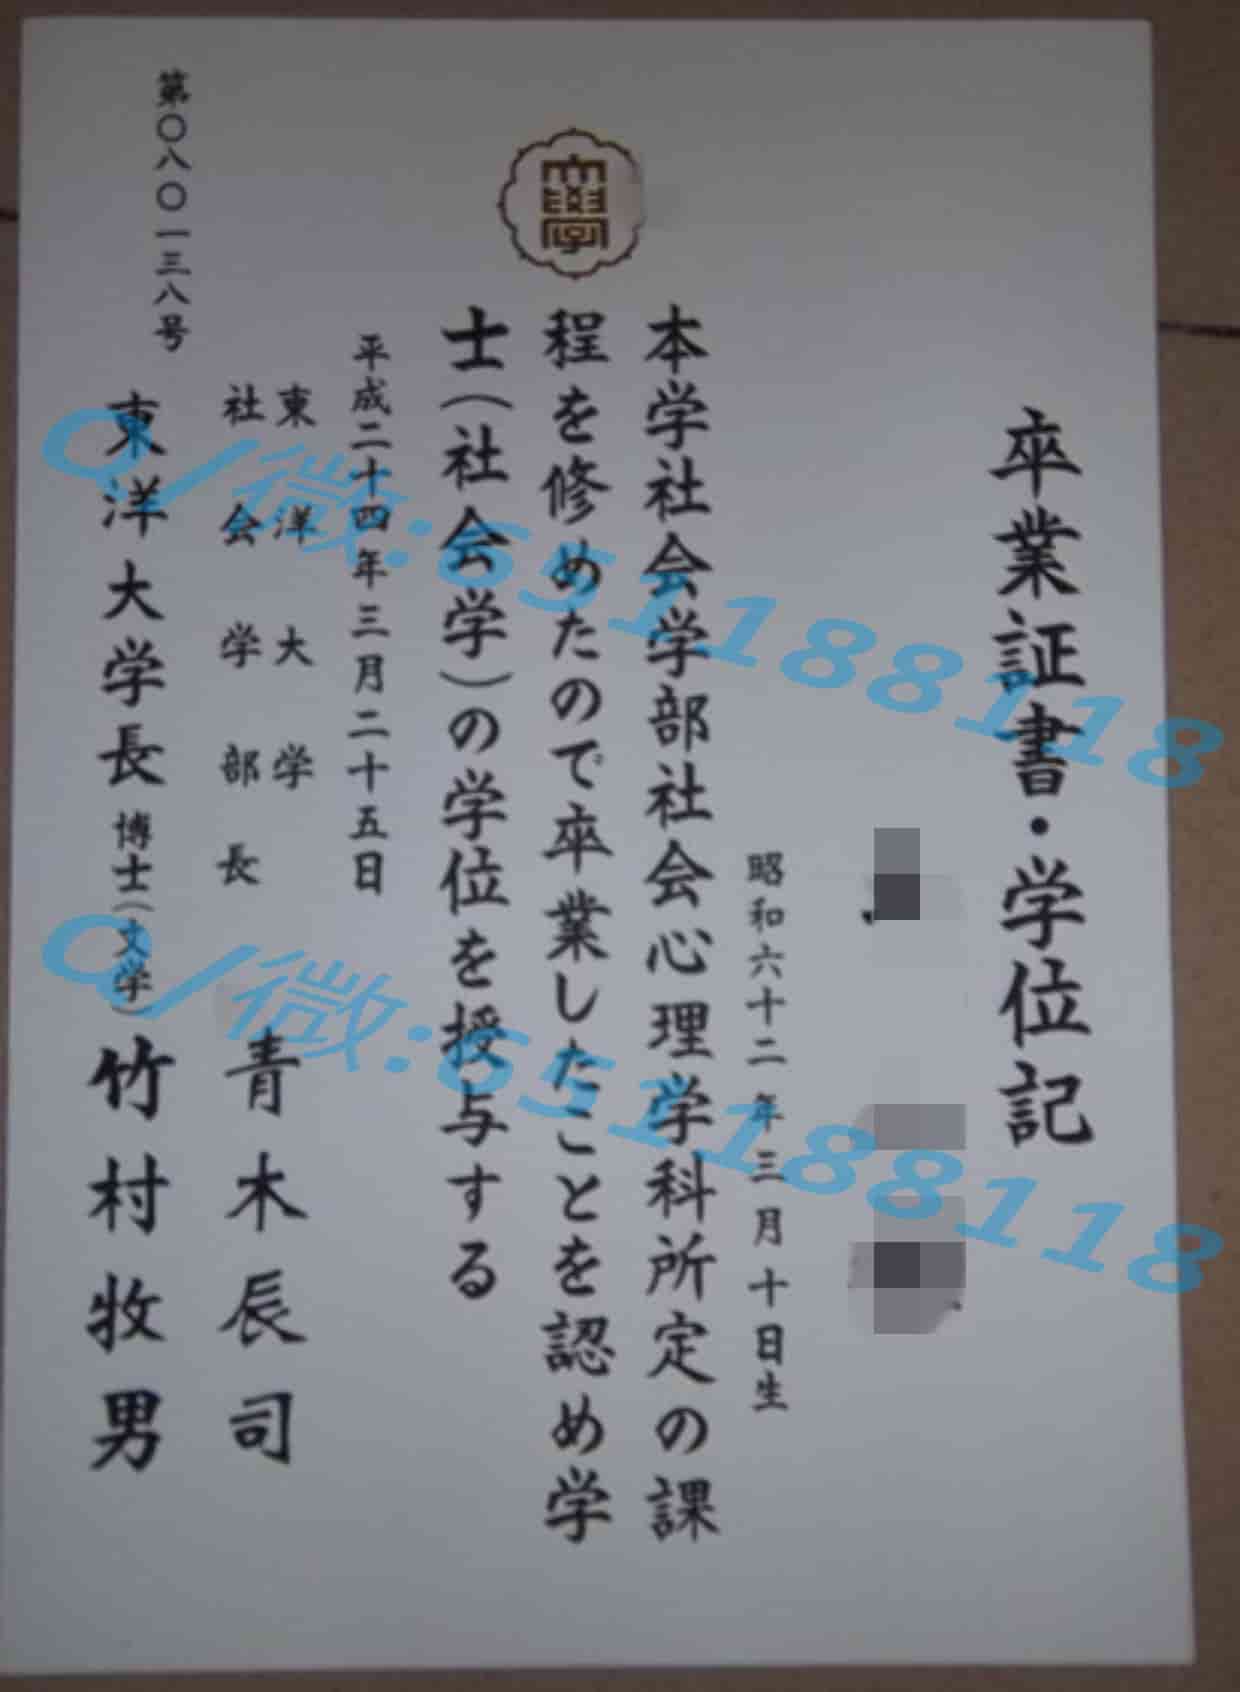 卒業証書・学位記
昭和六十二年三月十日生
本学社会学部社会心理学科所定の課
程を修めたので卒業したことを認め学
士(社会学)の学位を授与する
平成二十四年三月二十五日
東洋大学
社会学部長 青木辰司
東洋大学長 博士(文学) 竹村牧男
第〇八〇一三八号
Q/微:65118818
Q/微:65118818